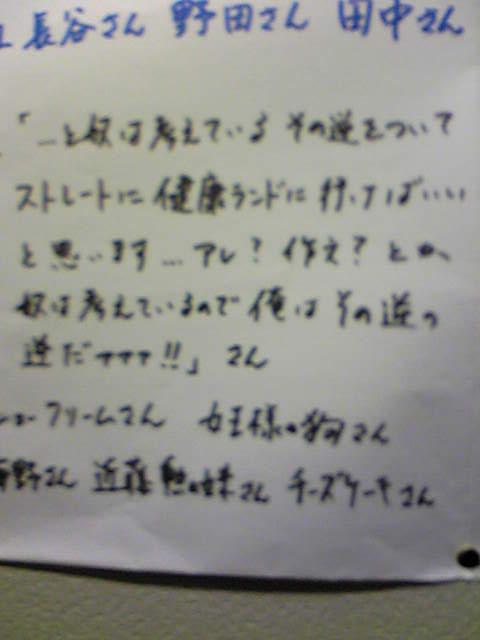 長谷さん 野田さん 田中さん
「…と奴は考えている その逆をついて
ストレートに 健康ランドに 行けばいい
と思います…アレ？作文？とか、
奴は考えているので 俺は その逆の
逆だァァァ!!」 さん
シュークリームさん 女王様の狗さん
野さん 近藤勲の妹さん チーズケーキさん